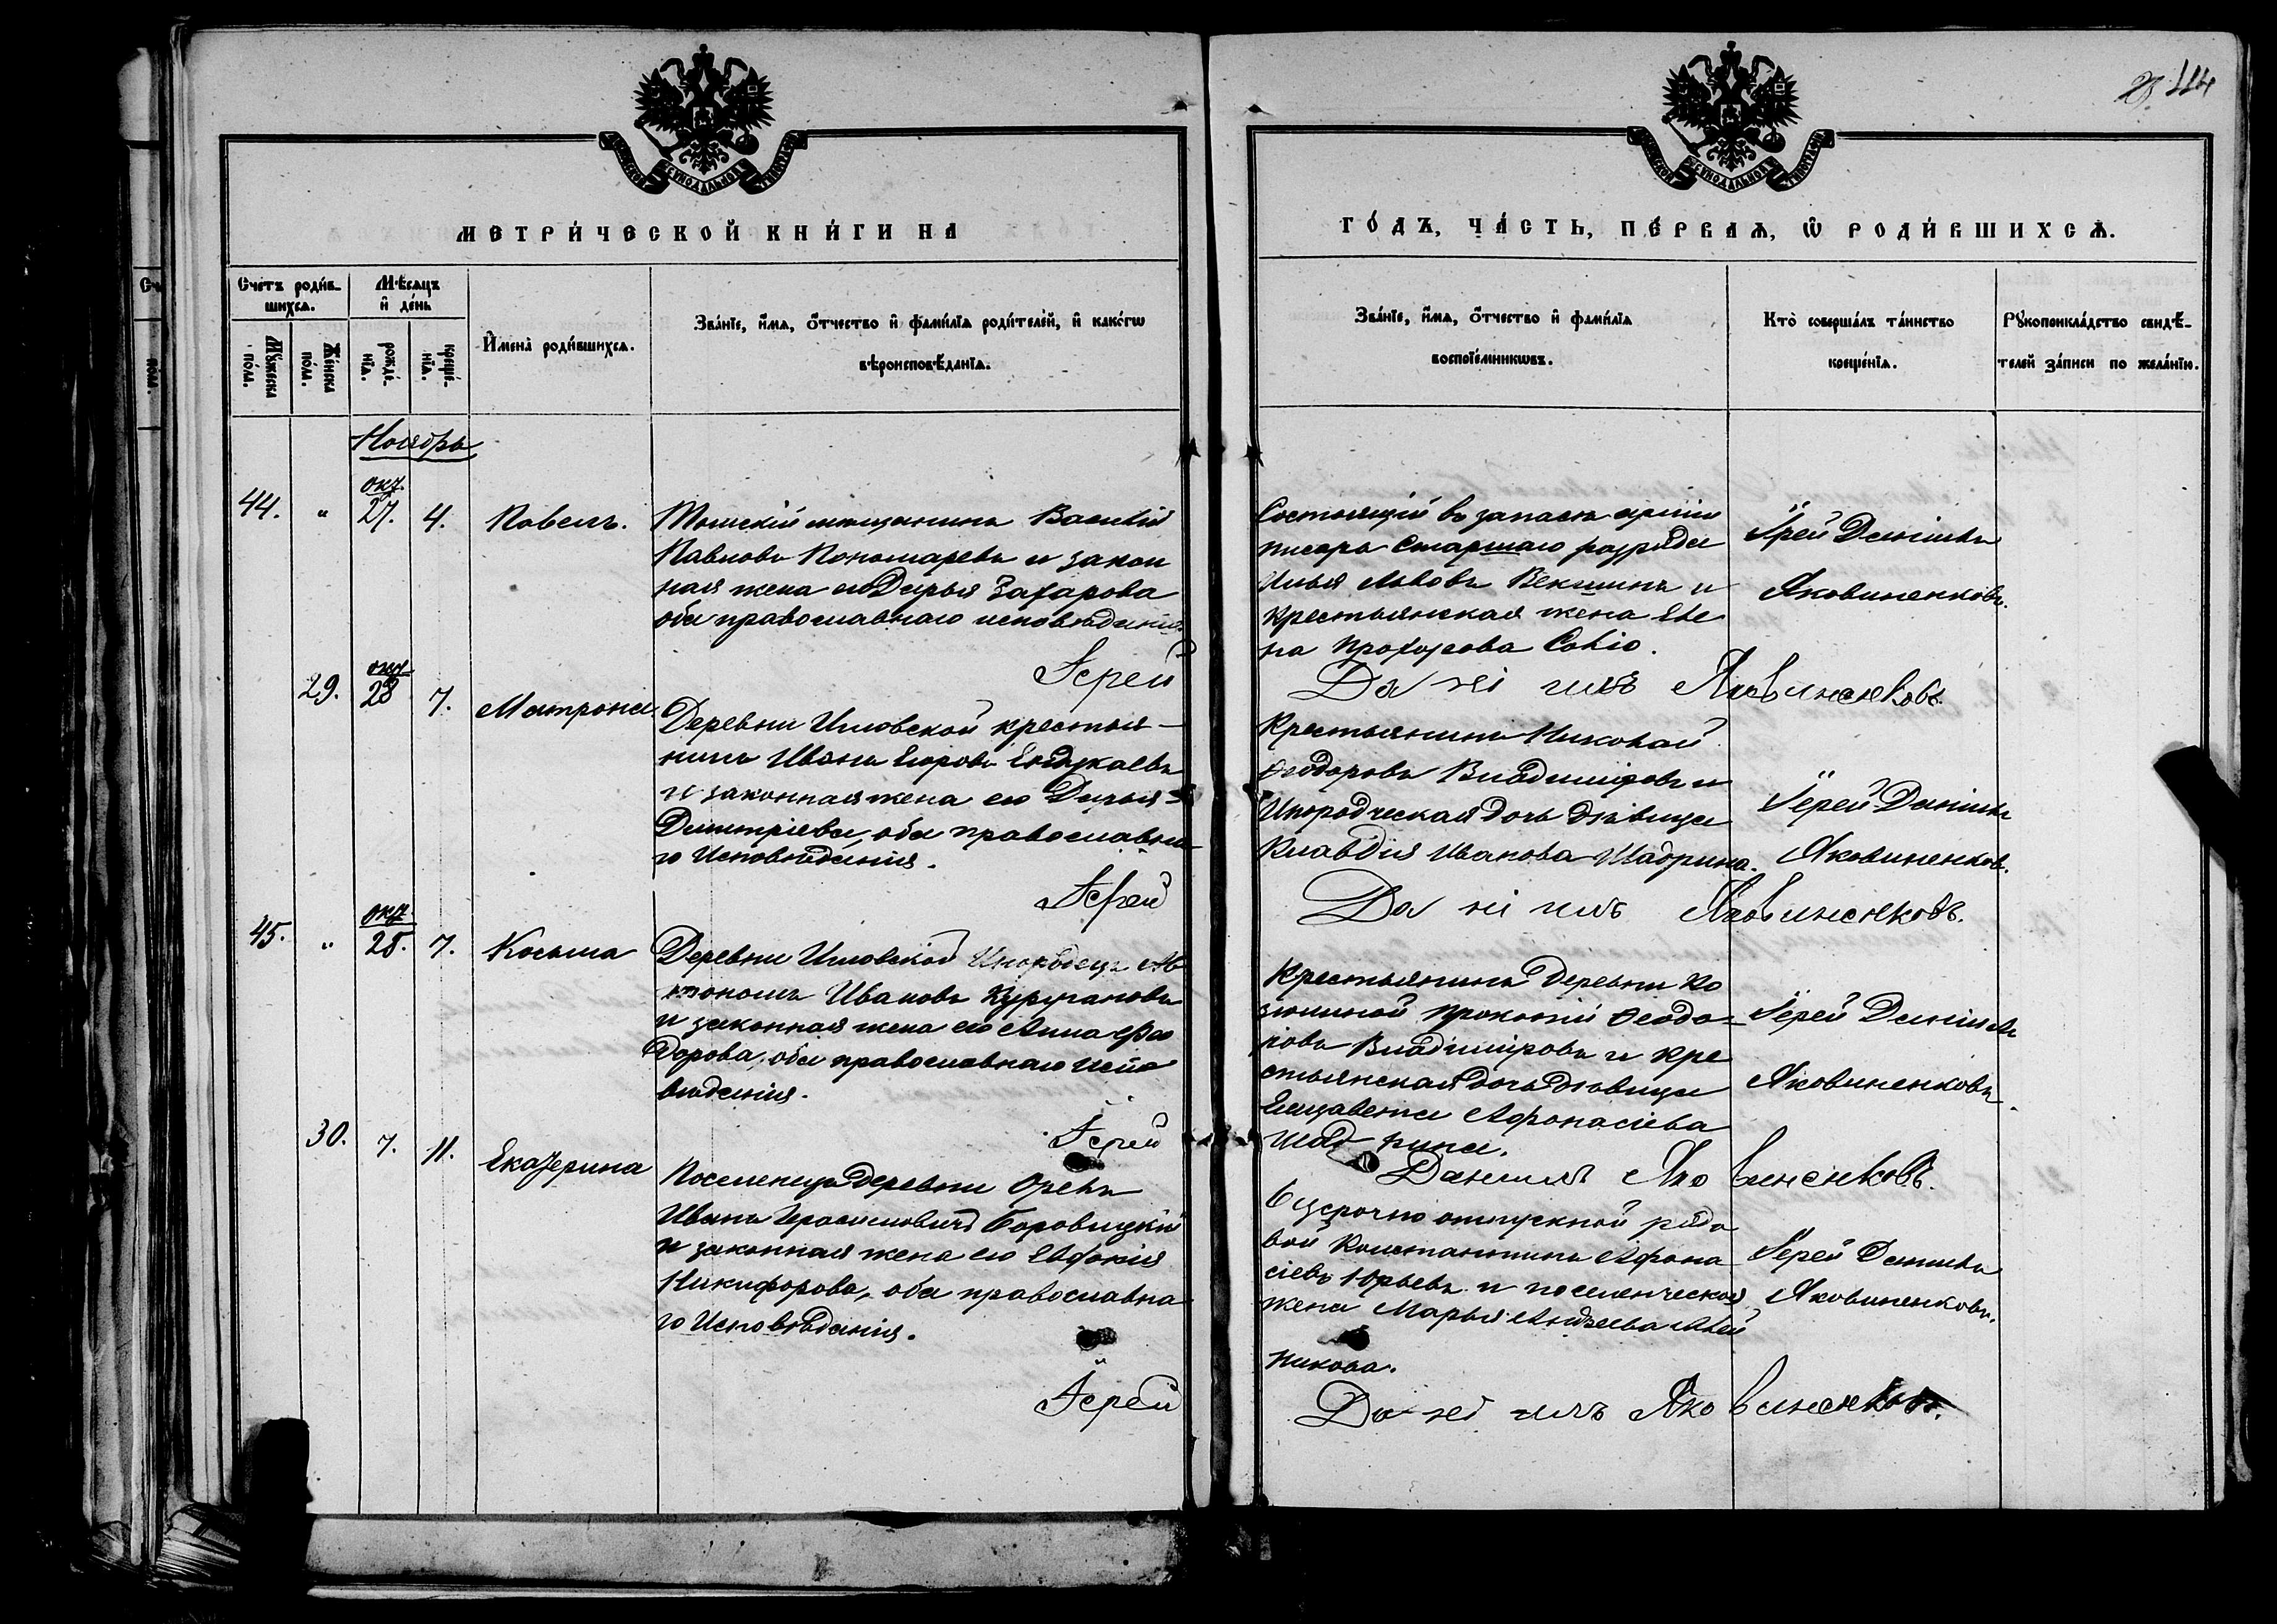 114
МЕТРИ́ЧЕСКОЙ КНИ́ГИ НА
ГО́ДЪ, ЧА́СТЬ, ПЕ́РВАѦ, Ѽ РОДИ́ВШИХСѦ.
Сче́тъ роди́в-
шихсѧ.
Мꙋ́жеска
по́ла.
Же́нска
по́ла.
Мѣ́сѧцъ
и҆ де́нь
рожде́-
нїѧ.
креще́-
нїѧ.
И҆мена̀ роди́вшихсѧ.
Зва́нїе, и҆́мѧ, ѻ҆́тчество и҆ фами́лїѧ роди́телей, и҆ како́гѡ
вѣроисповѣ́данїѧ.
Зва́нїе, и҆́мѧ, ѻ҆́тчество и҆ фами́лїѧ
воспрїе́мникѡвъ.
Кто̀ соверша́лъ та́инство
креще́нїѧ.
Рꙋкоприкла́дство свидѣ́-
телей за́писи по жела́нїю.
Ноябрь
44. " окт. 27. 4. Павелъ.
Томскій мѣщанинъ Василій
Павловъ Пономаревъ и закон
ная жена его Дарья Захарова
оба православнаго исповѣданія.
Состоящій въ запасѣ арміи
писарь старшаго разряда
Илья Львовъ Векшинъ и
крестьянская жена Еле
на Прохорова
Іерей Даніилъ
Яковиненковъ.
Іерей Даніилъ Яковиненковъ.
29. окт 28 7. Матрона
Деревни Иловской крестья-
нинъ Иванъ Егоровъ
и законная жена его Дарья
Димитріева, оба православна-
го Исповѣданія.
Крестьянинъ Николай
Ѳеодоровъ Владиміровъ и
Инородческая дочь дѣвица
Клавдія Иванова Шадрина.
Іерей Даніилъ
Яковиненковъ.
Іерей Даніилъ Яковиненковъ.
45. " окт. 28. 7. Косьма
Деревни Иловской Инородецъ Ав
тономъ Ивановъ
и законная жена его Анна Фео
дорова, оба православнаго испо
вѣданія.
Крестьянинъ деревни Ко
зюлиной Прокопій Ѳеодо-
ровъ Владиміровъ и кре
стьянская дочь дѣвица
Елизавета Афонасіева
Шадрина.
Іерей Даніилъ
Яковиненковъ.
Іерей Даніилъ Яковиненковъ.
30. 7. 11. Екатерина
Поселенецъ деревни
Иванъ Герасимовичъ Боровицкій
и законная жена его Евдокія
Никифорова, оба православна
го Исповѣданія.
безсрочно отпускной рядо
вой Константинъ Афона
сіевъ Юрьевъ и поселенческая
жена Марья
никова.
Іерей Даніилъ
Яковиненковъ.
Іерей Даніилъ Яковиненковъ.